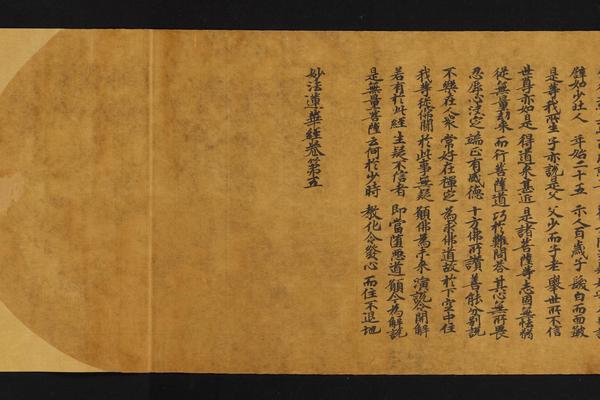 譬如少壯人 年始二十五 示人百歲子 髮白而面皺
是等我所生 子亦說是父 父少而子老 舉世所不信
世尊亦如是 得道來甚近 是諸菩薩等 志固無怯弱
從無量劫來 而行菩薩道 巧於難問答 其心無所畏
忍辱心決定 端正有威德 十方佛所讚 善能分別說
不樂在人衆 常好在禪定 為求佛道故 於下空中住
我等從佛聞 於此事無疑 願佛為未來 演說令開解
若有於此經 生疑不信者 即當墮惡道 願今為解說
是無量菩薩 云何於少時 教化令發心 而住不退地
妙法蓮華經卷第五